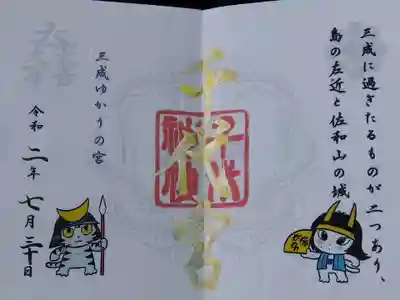 三成に過ぎたるものが二つあり、
島の左近と佐和山の城
千代宮
千代神社
三成ゆかりの宮
令和二年七月三十日